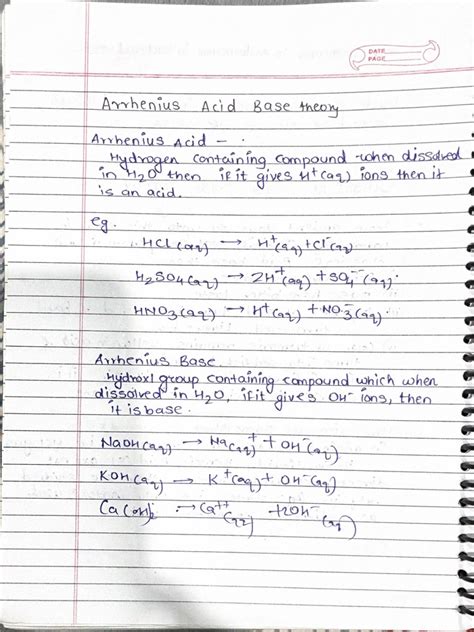 DATE
PAGE
Arrhenius Acid Base theory
Arrhenius Acid -
Hydrogen containing compound when dissolved
in H₂O then if it gives H⁺(aq) ions then it
is an acid.
eg.
HCl(aq) → H⁺(aq)+Cl⁻(aq)
H₂SO₄(aq) → 2H⁺(aq) + SO₄⁻(aq).
HNO₃(aq) → H⁺(aq) + NO₃⁻(aq).
Arrhenius Base.
Hydroxl group containing compound which when
dissolved in H₂O, if it gives OH⁻ ions, then
it is base.
NaOH(aq) → Na(aq)⁺ + OH⁻(aq)
KOH(aq) → K⁺(aq) + OH⁻(aq)
Ca(OH)₂ → Ca⁺⁺(aq) + 2OH⁻(aq)